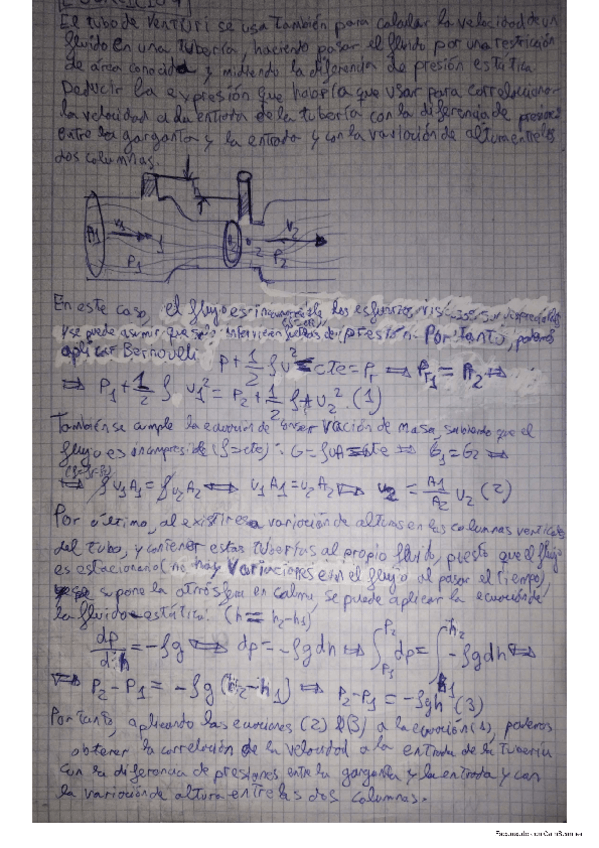 El tubo de Venturi se usa también para calcular la velocidad de un
fluido en una tubería, haciendo pasar el fluido por una restricción
de área conocida y midiendo la diferencia de presión estática.
Deducir la expresión que habría que usar para correlacionar
la velocidad a la entrada de la tubería con la diferencia de presiones
entre la garganta y la entrada y con la variación de altura entre las
dos columnas.
A1 v1 1 P1 2 P2 v2
En este caso, el flujo es incompresible, los esfuerzos
y se puede asumir que solo intervienen fuerzas de presión. Por tanto, podemos
aplicar Bernoulli P + 1/2 ρv² = cte = Pt ⇒ Pt1 = Pt2 ⇒
⇒ P1 + 1/2 ρ v1² = P2 + 1/2 ρ v2². (1)
También se cumple la ecuación de conservación de masa, sabiendo que el
flujo es incompresible (ρ=cte): G = ρvA = cte ⇒ G1 = G2 ⇒
⇒ ρv1A1 = ρv2A2 ⇔ v1A1 = v2A2 ⇔ v2 = A1/A2 v2 (2)
Por último, al existir esa variación de alturas en las columnas verticales
del tubo, y contener estas tuberías al propio fluido, puesto que el flujo
es estacionario (no hay variaciones en el flujo al pasar el tiempo),
supone la atmósfera en calma, se puede aplicar la ecuación de
la fluidoestática: (h = h2-h1)
dp/dh = -ρg ⇔ dp = -ρgdh ⇔ ∫P1 P2 dp = ∫h1 h2 -ρgdh ⇔
⇔ P2-P1 = -ρg(h2-h1) ⇒ P2-P1 = -ρgh (3)
Por tanto, aplicando las ecuaciones (2) y (3) a la ecuación (1), podemos
obtener la correlación de la velocidad a la entrada de la tubería
con la diferencia de presiones entre la garganta y la entrada y con
la variación de altura entre las dos columnas.